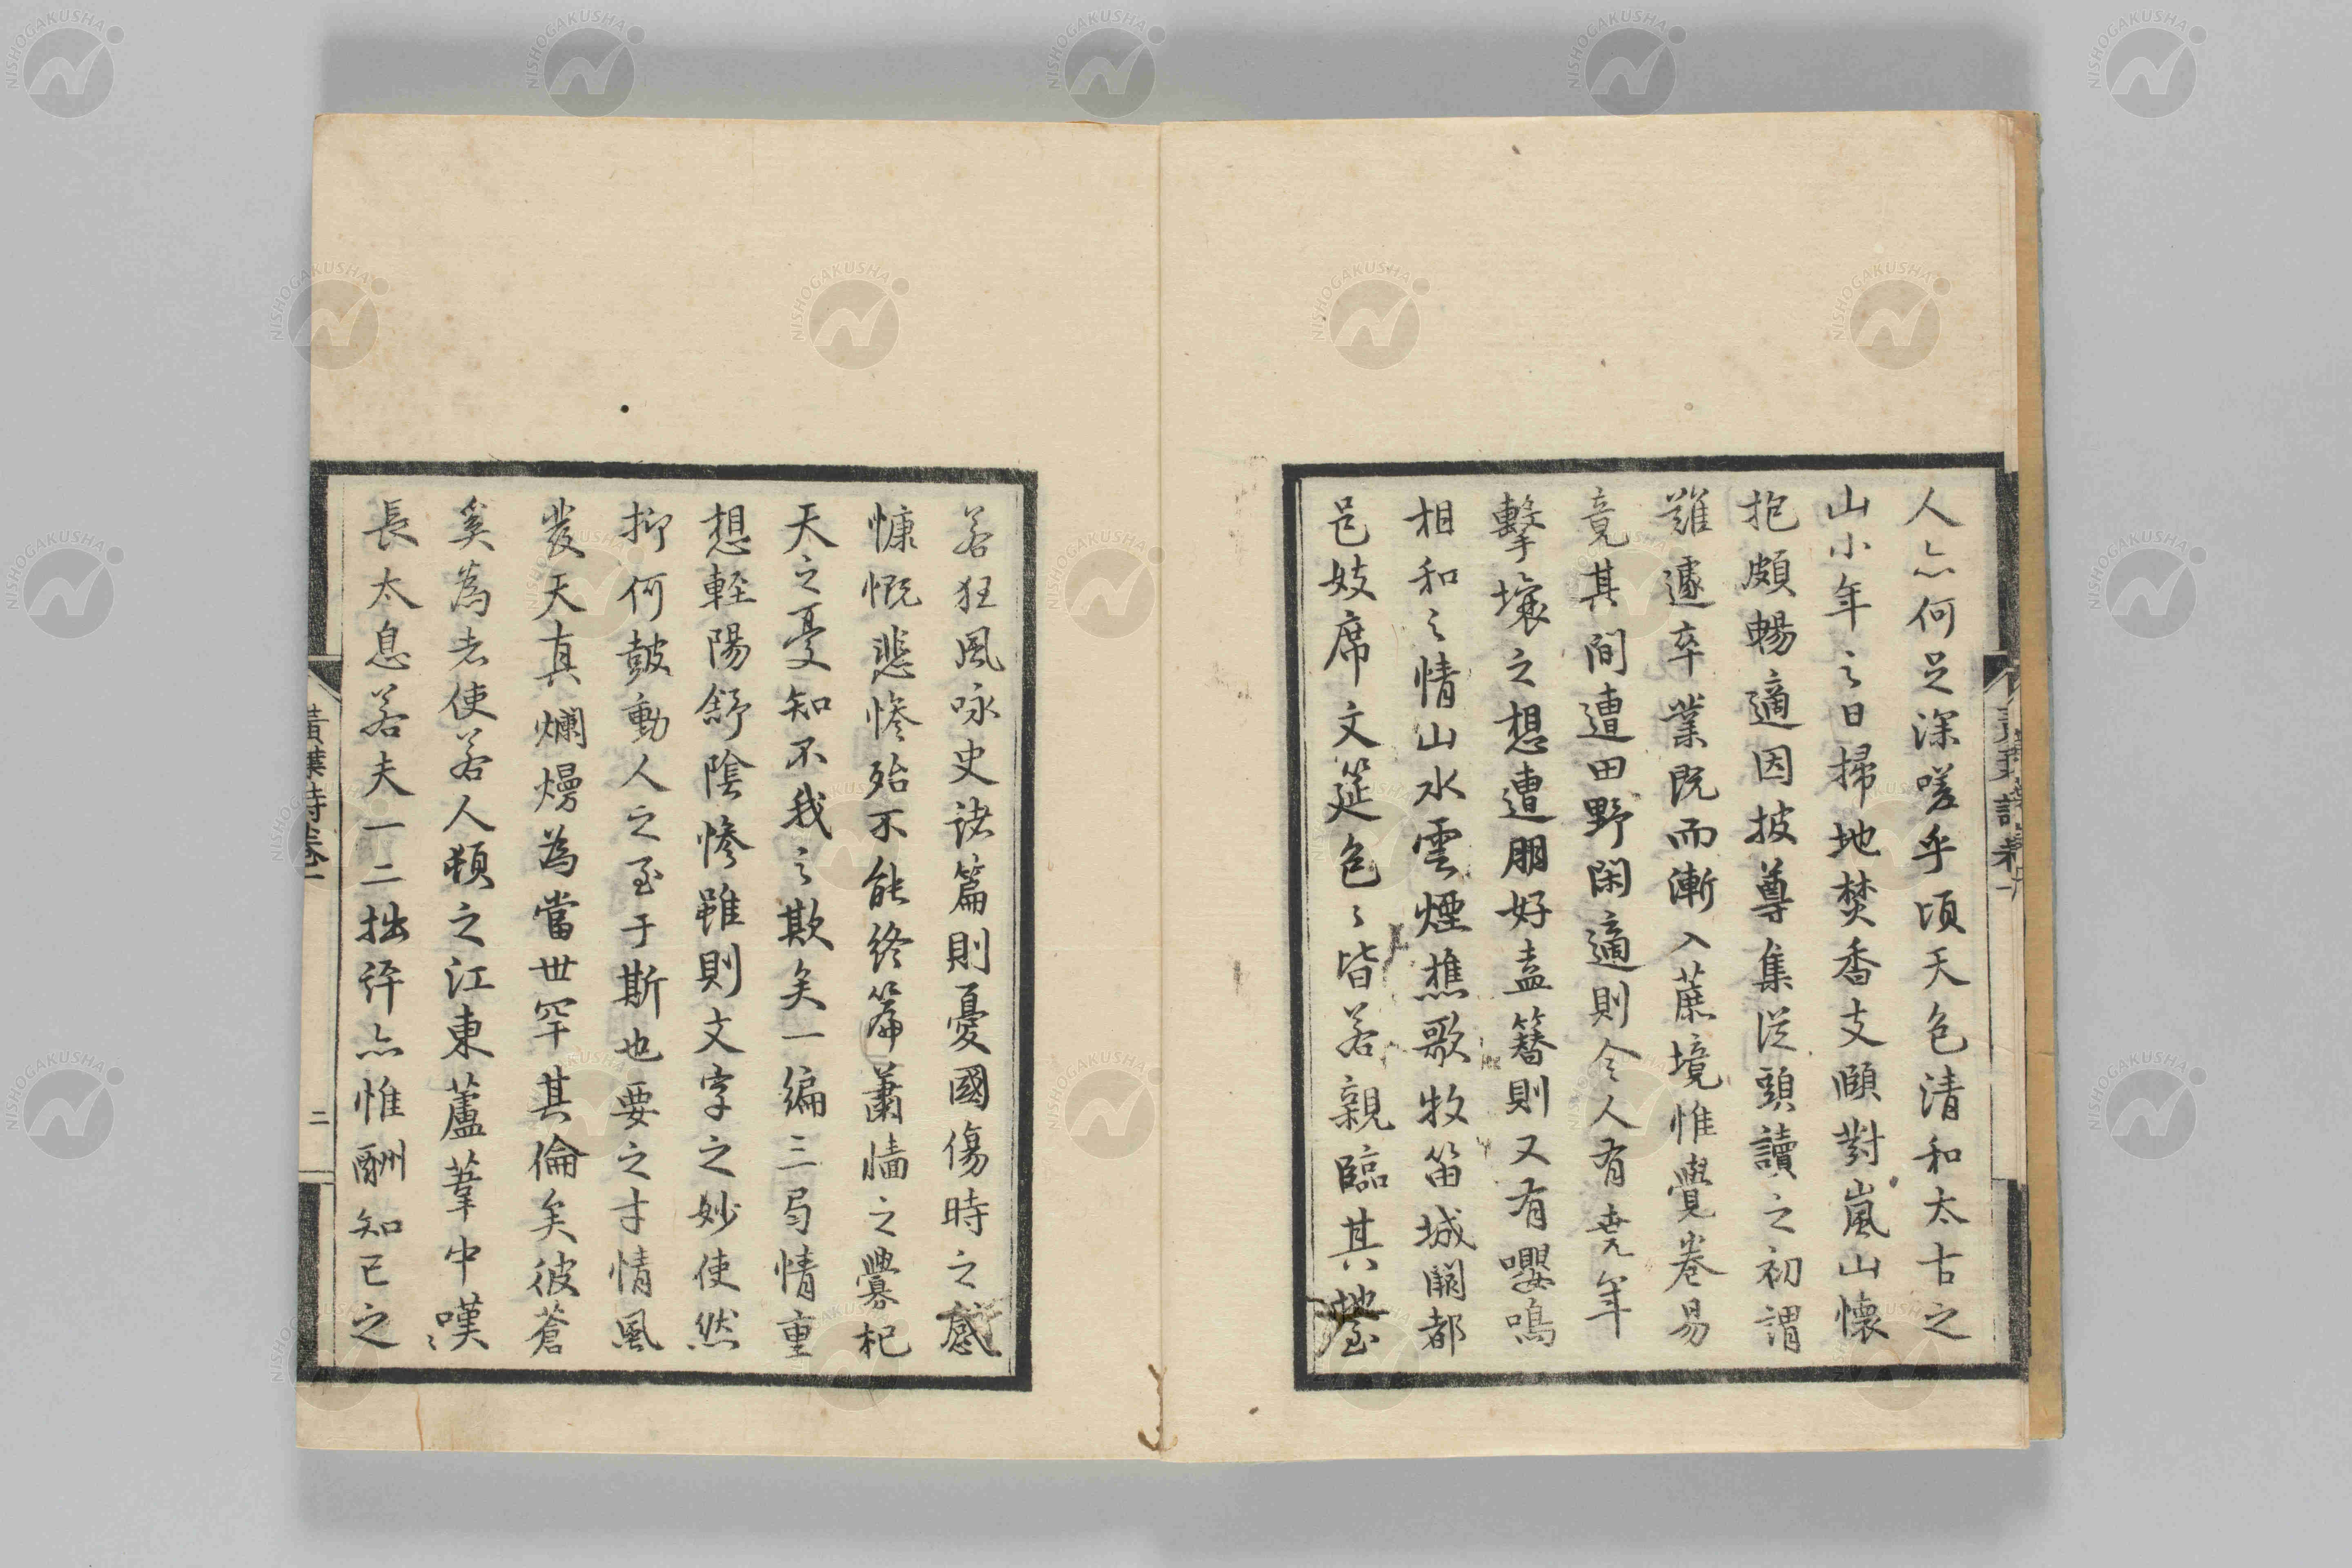 人亦何足深嗟乎頃天色清和太古之
山小年之日掃地焚香支頤對嵐山懷
抱頗暢適因披尊集從頭讀之初謂
難遽卒業既而漸入蔗境惟覺卷易
竟其間遭田野閑適則令人有堯年
擊壤之想遭朋好盍簪則又有嚶鳴
相和之情山水雲煙樵歌牧笛城關都
邑妓席文筵色〻皆若親臨其地至
若狂風咏史諸篇則憂國傷時之感
慷慨悲慘殆不能終篇蕭墻之釁杞
天之憂知不我之欺矣一編三局情重
想輕陽舒陰慘雖則文字之妙使然
抑何鼓動人之至于斯也要之才情風
裁天真爛熳為當世罕其倫矣彼蒼
奚為老使若人頓之江東蘆葦中嘆〻
長太息若夫一二拙評亦惟酬知己之
黃葉詩卷一
二
NISHOGAKUSHA